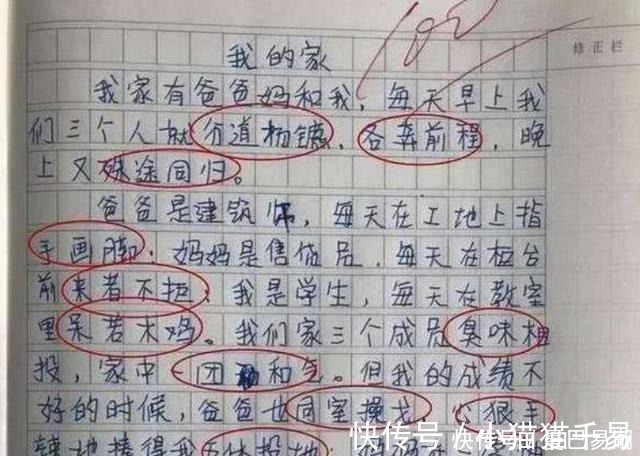 100
修正栏
我的家
我家有爸爸妈和我，每天早上我
们三个人就分道扬镳，各奔前程，晚
上又殊途同归。
爸爸是建筑师，每天在工地上指
手画脚；妈妈是售货员，每天在柜台
前来者不拒；我是学生，每天在教室
里呆若木鸡。我们家三个成员臭味相
投，家中一团和气。但我的成绩不
好的时候，爸爸也同室操戈，心狠手
辣地揍得我五体投地
快传号／小猫猫千易
快传号